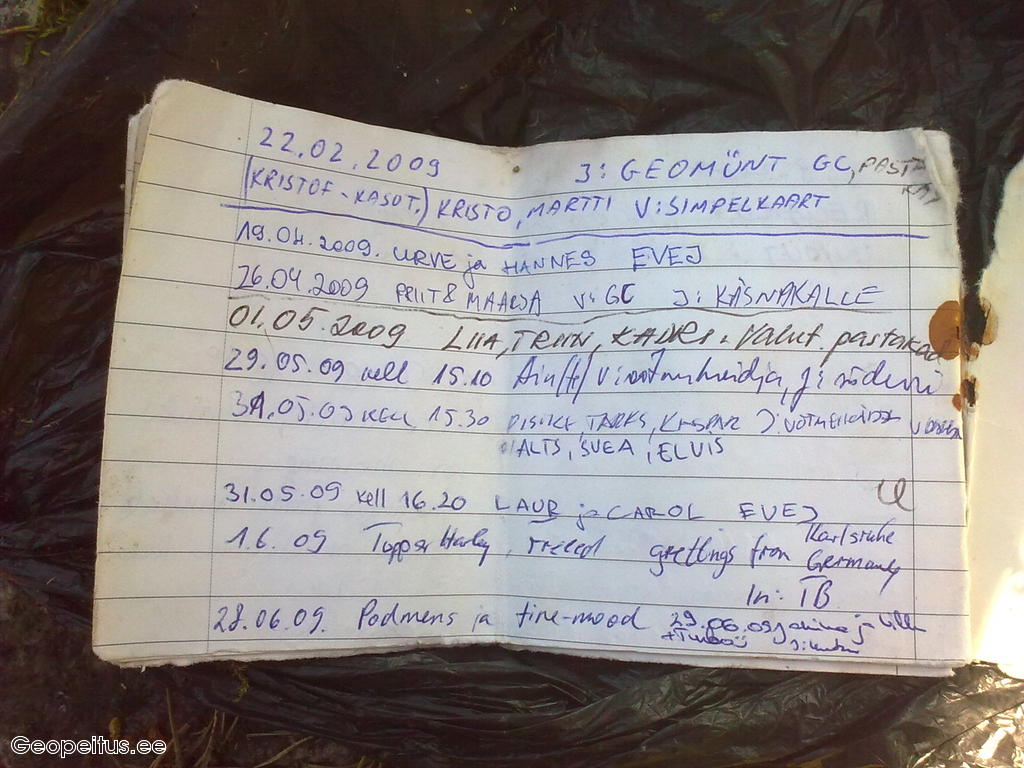 22.02.2009 J: GEOMÜNT GC, PASTAKAS
(KRISTOF-KASUT.) KRISTO, MARTTI V: SIMPELKAART
19.04.2009. URVE ja HANNES EVEJ
26.04.2009 PRIIT & MAARJA V: GC J: KÄSNAKALLE
01.05.2009 LIIA, TRIIN, KADRI. Valut. pastakad
29.05.09 kell 15.10 Ain V: võtmehoidja, J: sõduri
31.05.09 KELL 15.30 TARKS, KASPAR J: VÕTMEHOIDJA V:
ALTS, SVEA, ELVIS
31.05.09 kell 16.20 LAUR ja CAROL EVEJ
1.6.09 Topper Harley, greetings from Karlsruhe
Germany
In: TB
28.06.09. Podmens ja fine-mood 29.06.09 ja